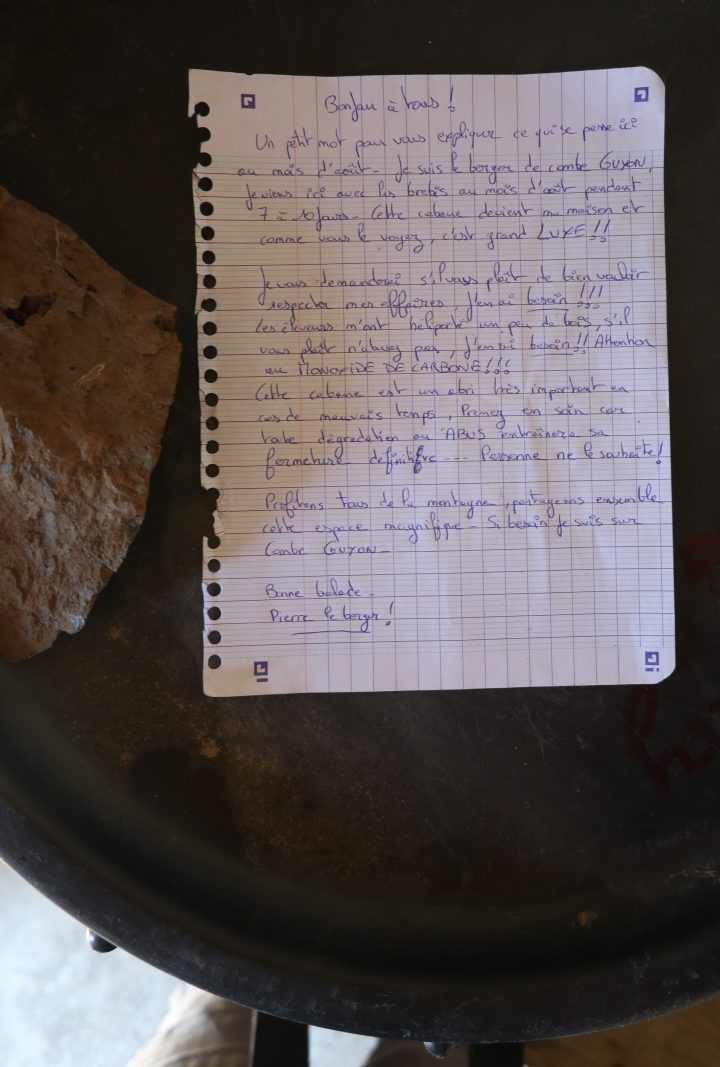 Bonjour à tous !
Un petit mot pour vous expliquer ce qui se passe ici
au mois d'août - Je suis le berger de combe GUYON,
Je viens ici avec les brebis au mois d'août pendant
7 à 10 jours - Cette cabane devient ma maison et
comme vous le voyez, c'est grand LUXE !!
Je vous demanderai s'il vous plait de bien vouloir
respecter mes affaires, j'en ai besoin !!!
Les éleveurs m'ont héliporté un peu de bois, s'il
vous plaît n'abusez pas, j'en ai besoin !! Attention
au MONOXIDE DE CARBONE !!!
Cette cabane est un abri très important en
cas de mauvais temps, Prenez en soin car
toute dégredation ou ABUS entraînera sa
fermeture définitive --- Personne ne le souhaite !
Profitons tous de la montagne, partageons ensemble
cette espace magnifique - Si besoin je suis sur
Combe GUYON -
Bonne balade -
Pierre le berger !